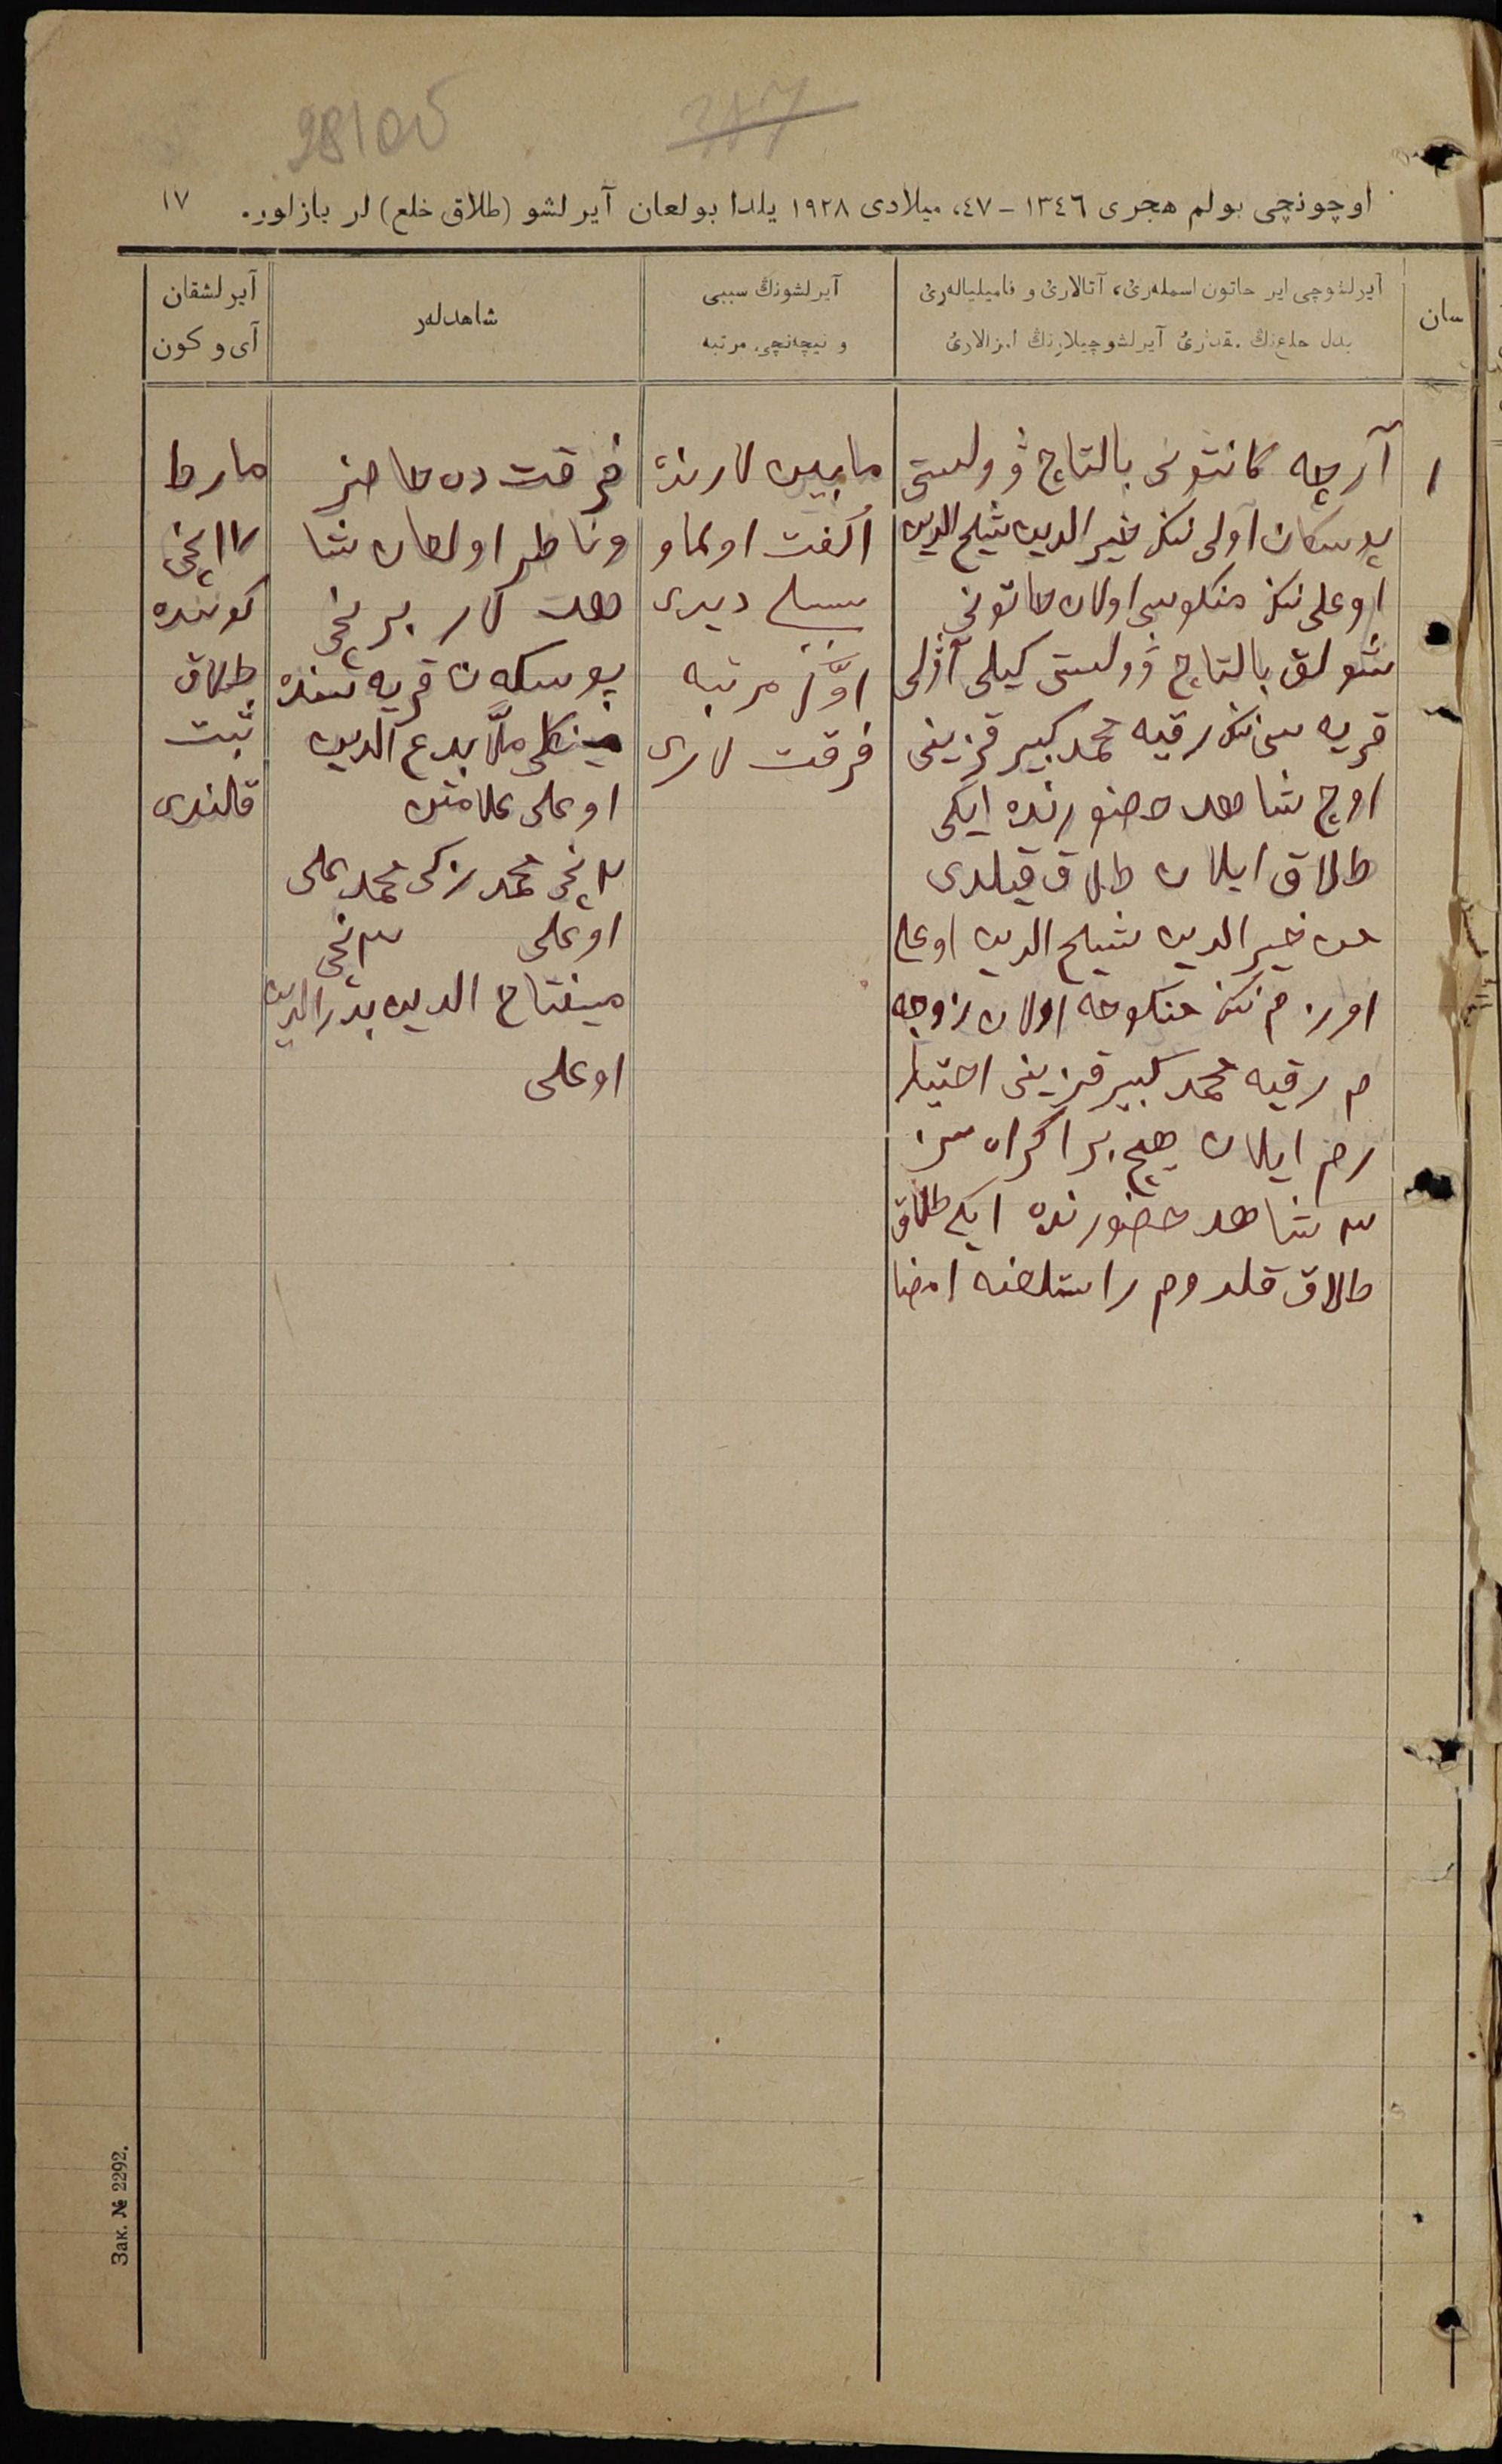 28100
317
اوچونچی بولم هجری ١٣٤٦ - ٤٧، میلادی ١٩٢٨ یلدا بولعان آیرلشو (طلاق خلع) لر یازلور.
١٧
سان
آیرلشوچی ایر خاتون اسملەرئ، آتالارئ و فامیلیالەرئ
بدل خلعنڭ مقدارئ آیرلشوچیلارنڭ امزالارئ
آیرلشونڭ سببی
و نیچەنچی مرتبه
شاهدلەر
آیرلشقان
آی و کون
١
آرچه کانتونی بالتاچ ۋولستی
اولی ننک خیر الدین شیلح الدین
اوغلی ننک منکوسی اولان خاتونی
بالتاچ ۋولستی آۋلی
قریه سی ننک رقیه محمد کبیر قزینی
اوچ شاهد حضورنده ایکی
طلاق ایلان طلاق قیلدی
من خیر الدین شیلح الدین اوغلی
اوزم ننک منکوحه اولان زوجه
م رقیه محمد کبیر قزینی اختیا
رم ایلان هیچ بر اکراه سز
٣ شاهد حضورنده ایکی طلاق
طلاق قلدوم راستلغنه امضا
مابین لارنده
الفت اولماو
سببلی دیدی
اوّل مرتبه
فرقت لاری
فرقت ده حاضر
و ناظر اولغان شا
هد لار برنچی
قریه سنده
ملّا بدع الدین
اوغلی
٢ نچی محمد زکی محمد علی
اوغلی ٣ نچی
میفتاح الدین بدر الدین
اوغلی
مارط
١٧ نچی
کوننده
طلاق
ثبت
قلندی
Зак. № 2292.